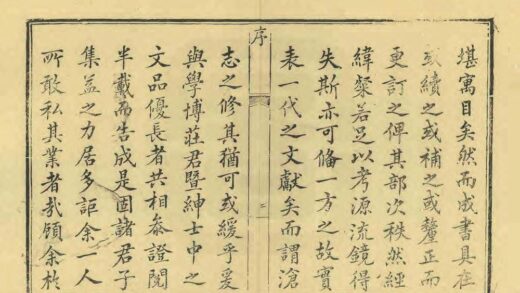 堪寓目矣然而成書具在
或續之或補之或釐正而
更訂之俾其部次秩然經
緯粲若足以考源流鏡得
失斯亦可備一方之故實
表一代之文獻矣而謂滄
序
二
志之修其猶可或緩乎爰
與學博莊君暨紳士中之
文品優長者共相叅證閱
半載而告成是固諸君子
集益之力居多詎余一人
所敢私其業者哉顧余於